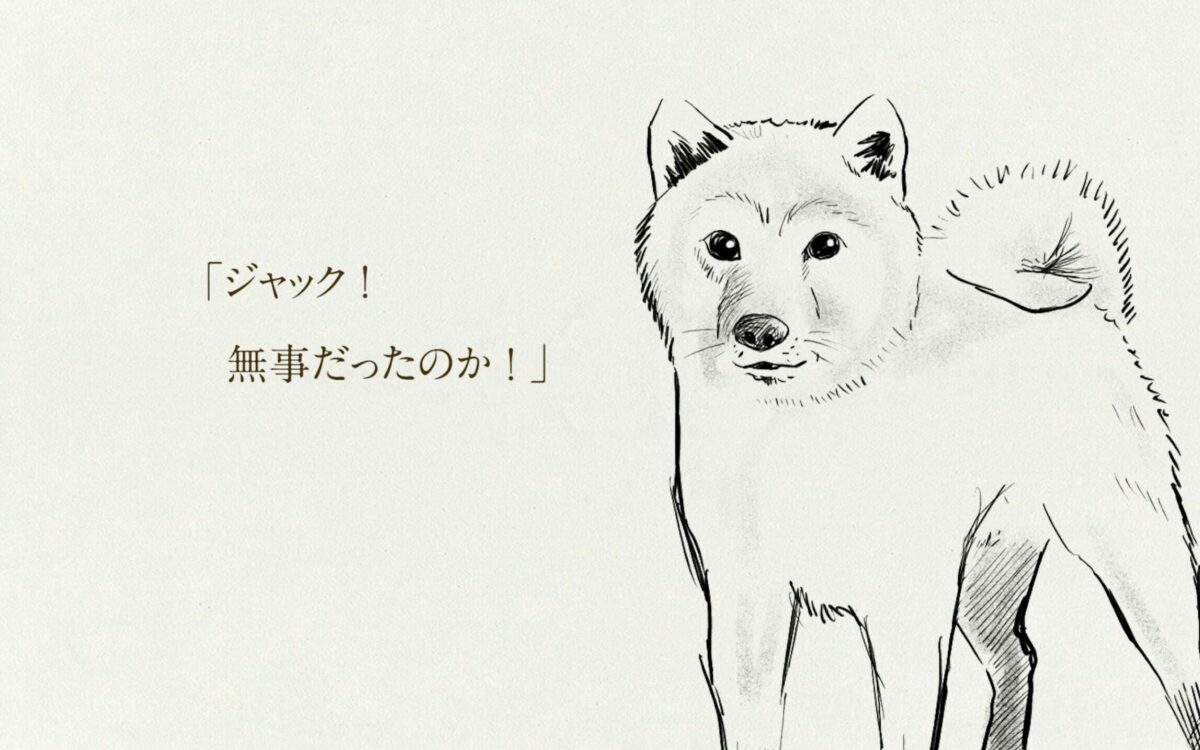 「ジャック！
無事だったのか！」